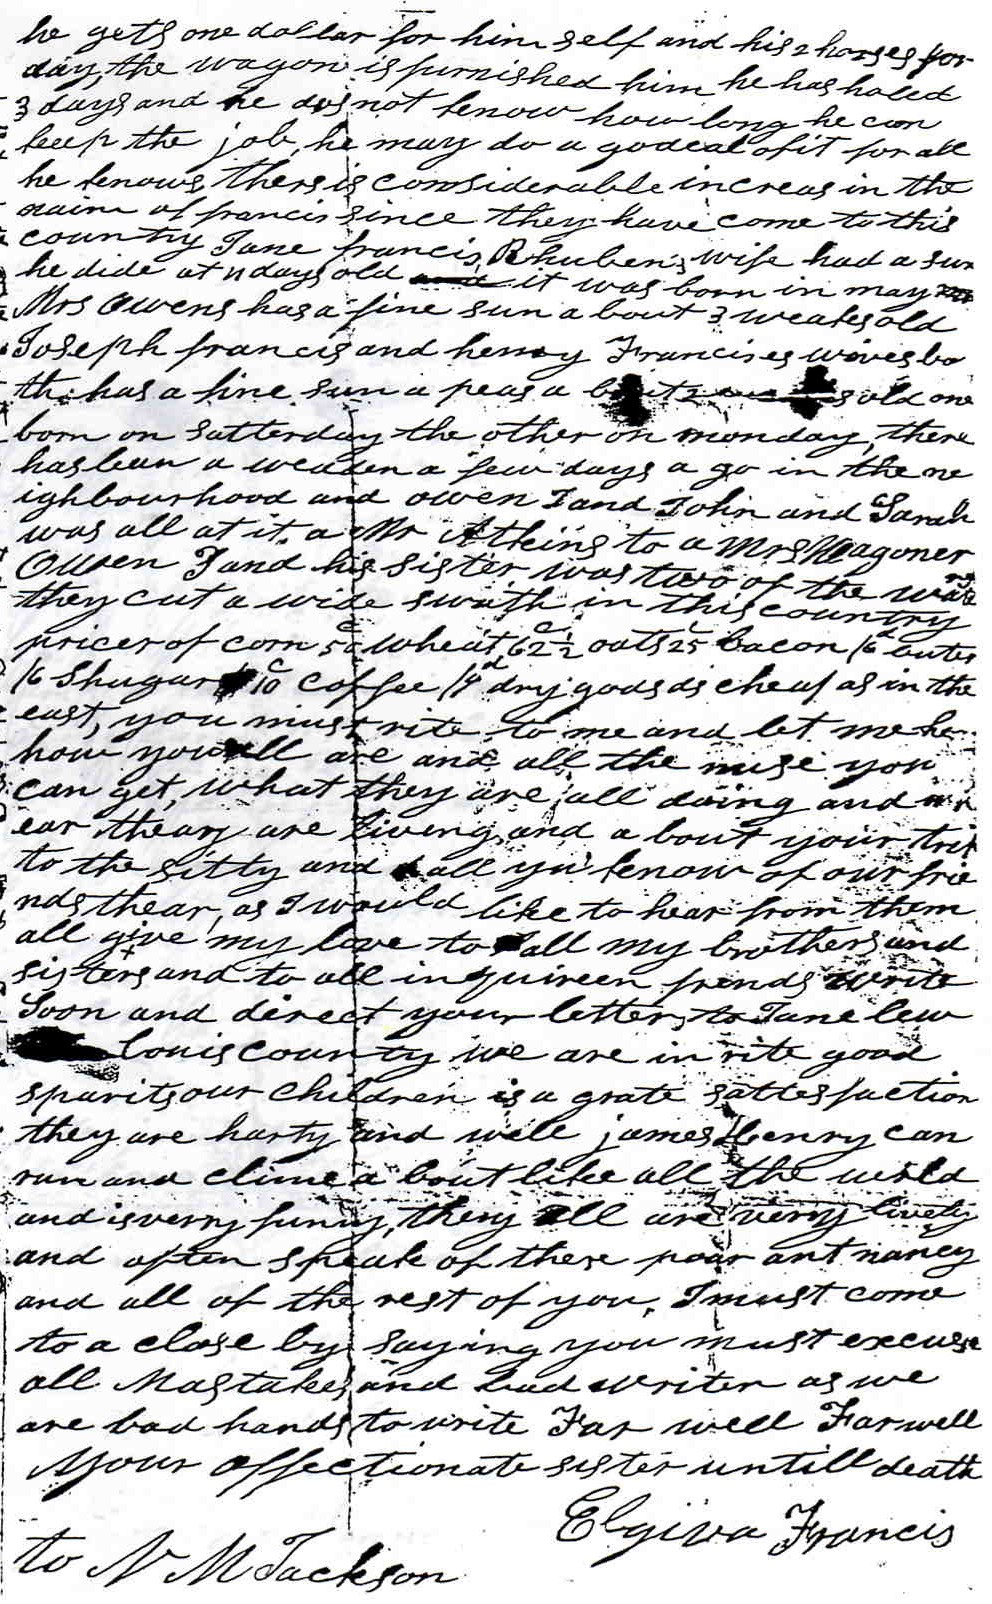 he gets one dollar for him self and his 2 horses for
day, the wagon is furnished him he has haled
3 days and he dos not know how long he can
keep the job, he may do a godeal of it for all
he knows, thers is considerable increas in the
naim of francis since they have come to this
country Jane francis, Rhubens wife had a sun
he dide at 11 days old it was born in may
Mrs Owens has a fine sun a bout 3 weaks old
Joseph francis and henry Francises wives bo
th has a fine sun a peas a bout 2 old one
born on satterday the other on monday, there
has bean a weaden a few days a go in the ne
ighbourhood and owen I and John and Sarah
was all at it. a Mr Atkins to a Mrs Wagoner
Owen I and his sister was two of the
they cut a wide swath in this country
prices of corn 50c wheat 62 1/2c oats 25c bacon /6d buter
/6 Shugar 10c coffee /9d dry goods is cheap as in the
east, you must rite to me and let me he
how you all are and all the nuse you
can get, what they are all doing and
ear theay are living, and a bout your trip
to the sitty and all yu know of our frie
nds thear, as I would like to hear from them
all give my love to all my brothers and
sisters and to all inquireen frends write
Soon and direct your letters to Jane lew
Louis county we are in rite good
sparits our children is a grate sattesfaction
they are harty and well james Henry can
run and clime a bout like all the world
and is verry funny, they all are verry lively
and often speak of there poar ant nancy
and all of the rest of you, I must come
to a close by saying you must excuse
all Mastakes and bad writen as we
are bad hands to write Far well Farwell
Your affectionate sister untill death
Elgiva Francis
to N M Jackson